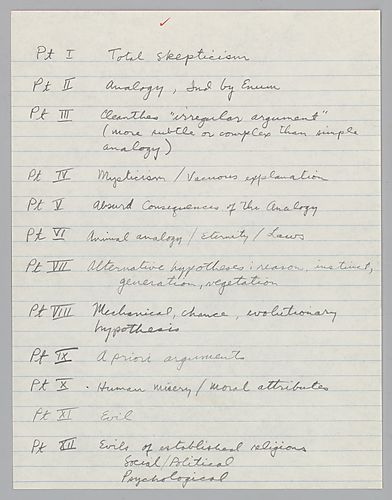 Pt I Total skepticism
Pt II Analogy, Ind by Enum
Pt III Cleanthes "irregular argument"
(more subtle or complex than simple
analogy)
Pt IV Mysticism / Vacuous explanation
Pt V Absurd Consequences of the Analogy
Pt VI Animal analogy / Eternity / Laws
Pt VII Alternative hypotheses: reason, instinct,
generation, vegetation
Pt VIII Mechanical, chance, evolutionary
hypothesis
Pt IX A priori arguments
Pt X Human misery / Moral attributes
Pt XI Evil
Pt XII Evils of established religions
Social / Political
Psychological